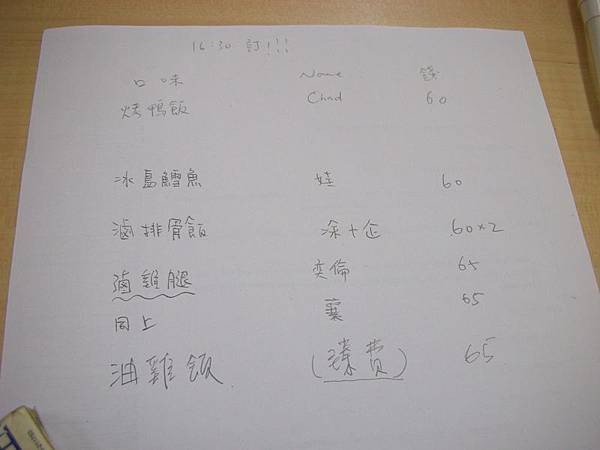 16:30 訂!!!
口味 Name 錢
烤鴨飯 Chad 60
冰島鱈魚 娃 60
滷排骨飯 涂+企 60×2
滷雞腿 奕倫 65
同上 65
油雞飯 65